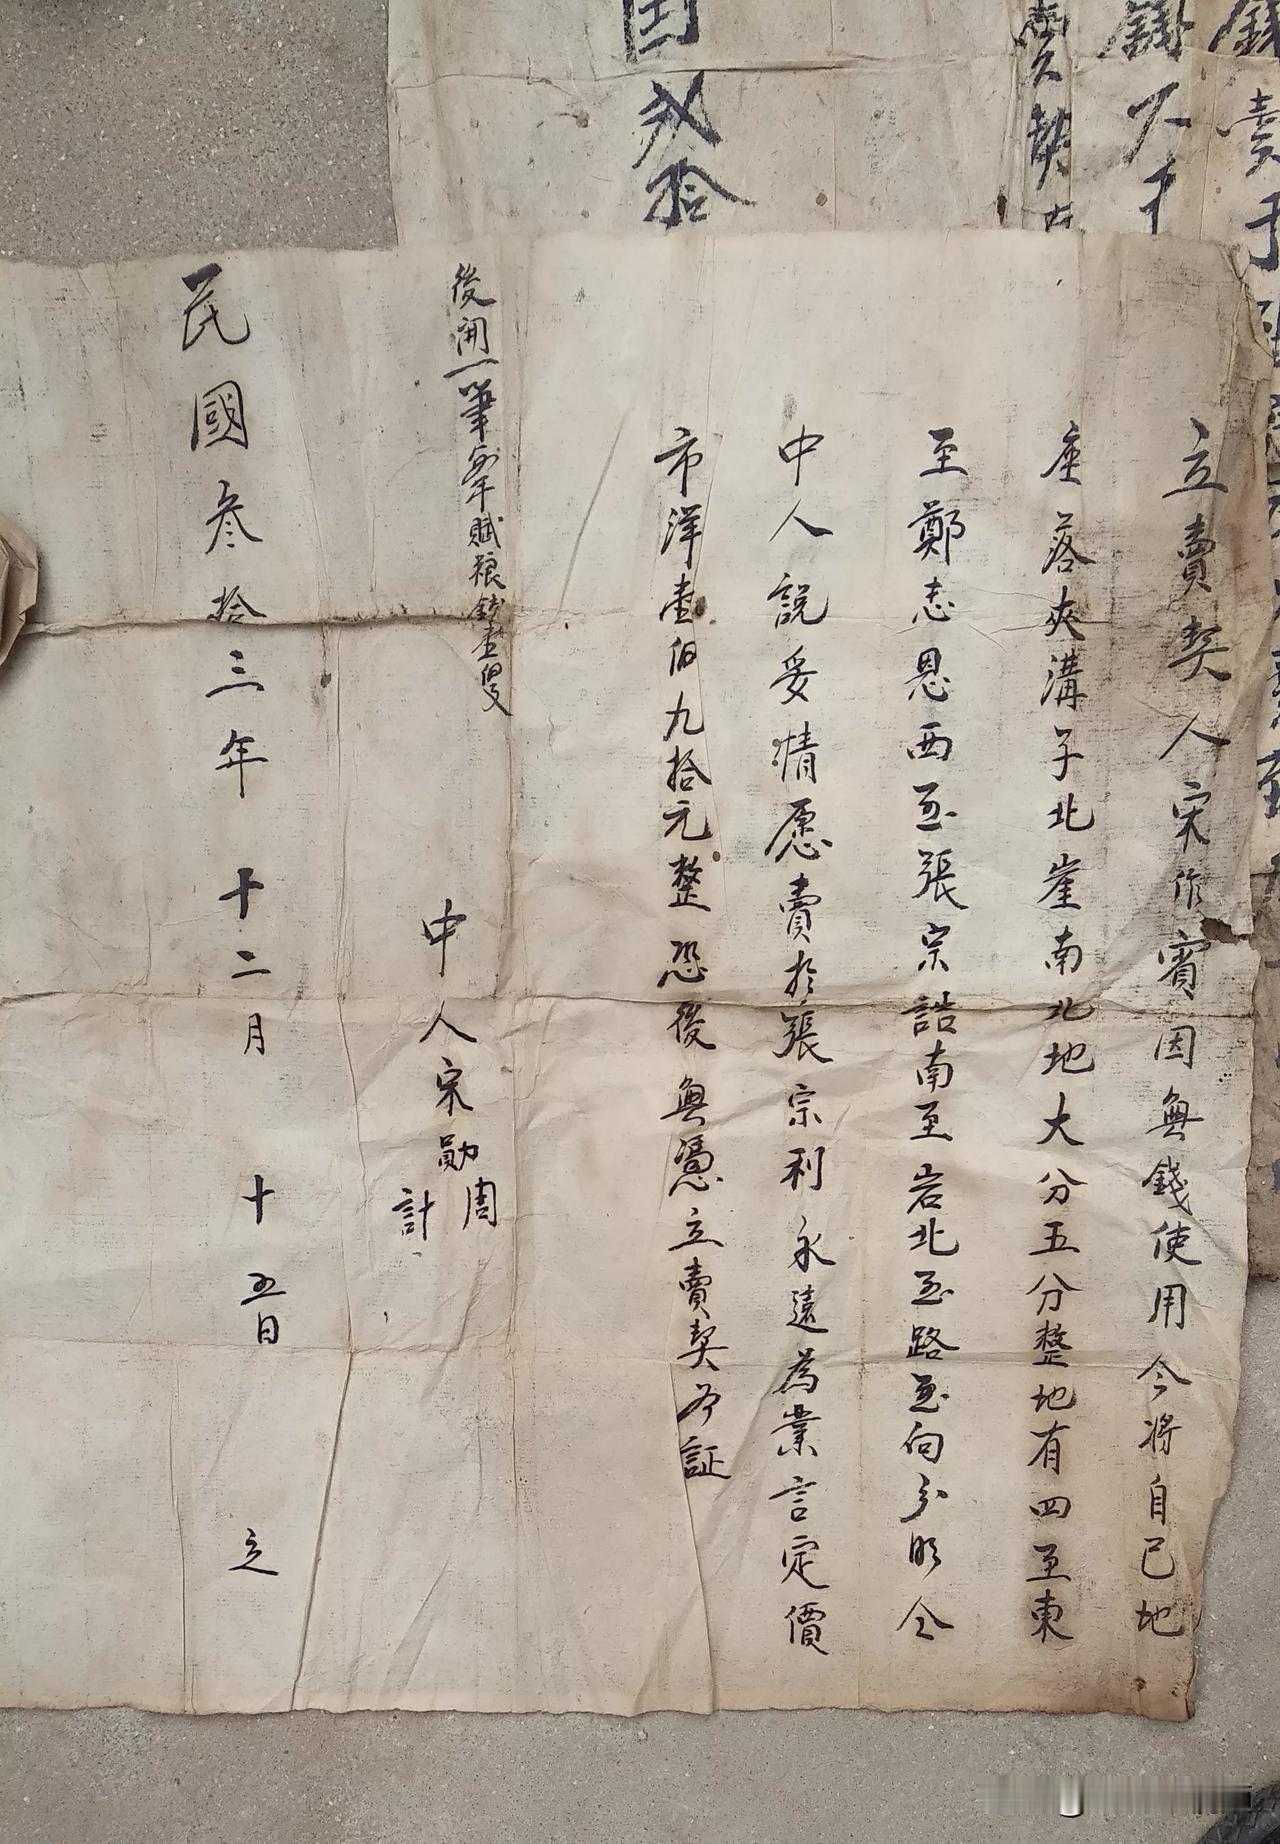 立賣契人宋作賓因無錢使用今將自己地
座落夾溝子北崖南北地大分五分整地有四至東
至鄭志恩西至張宗誥南至岩北至路至向分明今
中人説妥情愿賣於張宗利永遠為業言定價
市洋壹佰九拾元整恐後無憑立賣契为証
後開一筆每年賦粮錢壹
中人宋勛周
計
民國叁拾三年十二月十五日立
国弐拾
賣契
錢
賣于